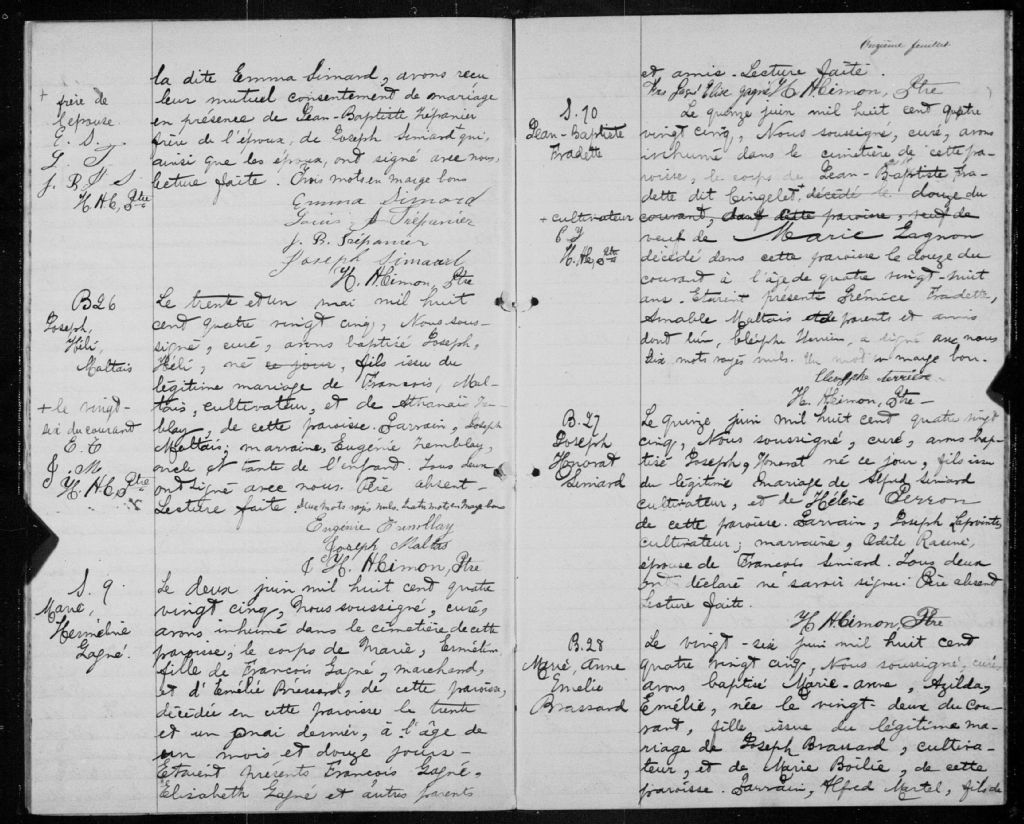 + frère de
l'épouse.
E. S.
L. T.
J. B. T. S.
H. H C, Ptre
la dite Emma Simard, avons reçu
leur mutuel consentement de mariage
en présence de Jean-Baptiste Trépanier
frère de l'époux, de Joseph Simard qui,
ainsi que les époux, ont signé avec nous,
lecture faite. Trois mots en marge bons
Emma Simard
Louis Trépanier
J. B. Trépanier
Joseph Simard
H. Hémon, Ptre
B 26
Joseph,
Héli,
Maltais
+ le vingt-
six du courant
E. T
J. M
H. H C, Ptre
Le trente et un mai mil huit
cent quatre vingt cinq, Nous sous-
signé, curé, avons baptisé Joseph,
Héli, né ce jour, fils issu du
légitime mariage de François, Mal-
tais, cultivateur, et de Athanaïs Trem-
blay, de cette paroisse. Parrain, Joseph
Maltais; marraine, Eugénie Tremblay,
oncle et tante de l'enfant. Tous deux
ont signé avec nous. Père absent-
Lecture faite Deux mots rayés nuls, quatre mots en marge bons
Eugénie Tremblay
Joseph Maltais
H. Hémon, Ptre
S. 9.
Marie,
Herméline
Gagné.
Le deux juin mil huit cent quatre
vingt cinq, Nous soussigné, curé,
avons inhumé dans le cimetière de cette
paroisse, le corps de Marie, Ermélin
fille de François Gagné, marchand,
et d'Emélie Brassard, de cette paroisse,
décédée en cette paroisse le trente
et un mai dernier, à l'âge de
un mois et douze jours-
Etaient présents François Gagné,
Elisabeth Gagné et autres parents
Onzième feuillet
et amis. Lecture faite.
Elise gagné H Hémon, Ptre
S. 10
Jean-Baptiste
Fradette
+ cultivateur
C T
H. H C, Ptre
Le quinze juin mil huit cent quatre
vingt cinq, Nous soussigné, curé, avons
inhumé dans le cimetière de cette pa-
roisse, le corps de Jean-Baptiste Fra-
dette dit Lingelet + décédé le douze du
courant, dans cette paroisse, veuf de
veuf de Marie Gagnon
décédé dans cette paroisse le douze du
courant à l'âge de quatre vingt-huit
ans. Etaient présents Prémice Fradette,
Amable Maltais et de parents et amis
dont l'un, Cléophe Therrien, a signé avec nous
Six mots rayés nuls. Un mot en marge bon.
Cleophe terrien
H. Hémon, Ptre-
B. 27
Joseph
Honorat
Simard
Le quinze juin mil huit cent quatre vingt
cinq, Nous soussigné, curé, avons bap-
tisé Joseph, Honorat né ce jour, fils issu
du légitime mariage de Alfred Simard
cultivateur, et de Hélène Perron
de cette paroisse. Parrain, Joseph Lapointe,
cultivateur; marraine, Odile Racine,
épouse de François Simard. Tous deux
ont déclaré ne savoir signer. Père absent
Lecture faite.
H Hémon, Ptre
B. 28
Marie, Anne
Emélie
Brassard
Le vingt-six juin mil huit cent
quatre vingt cinq, Nous soussigné, curé,
avons baptisé Marie-anne, Azilda,
Emélie, née le vingt-deux du cou-
rant, fille issue du légitime ma-
riage de Joseph Brassard, cultiva-
teur, et de Marie Boilié, de cette
paroisse. Parrain, Alfred Martel, fils de